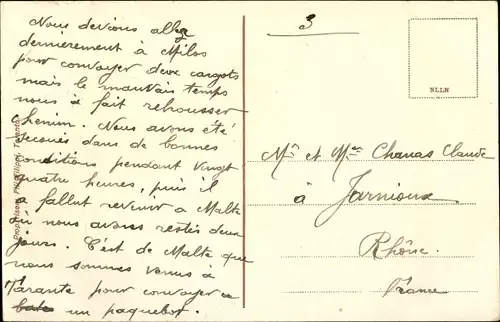 Nous devions allez
dernièrement à Milos
pour convoyer deux cargots
mais le mauvais temps
nous à fait rebrousser
chemin. Nous avons été
secoués dans de bonnes
conditions pendant vingt
quatre heures, puis il
a fallut revenir à Malte
ou nous avons restés deux
jours. C'est de Malte que
nous sommes venus à
Tarante pour convoyer ce
bato un paquebot.
3
NLLN
Mr et Mme Chanas Claude
à Jarnioux
Rhône
France